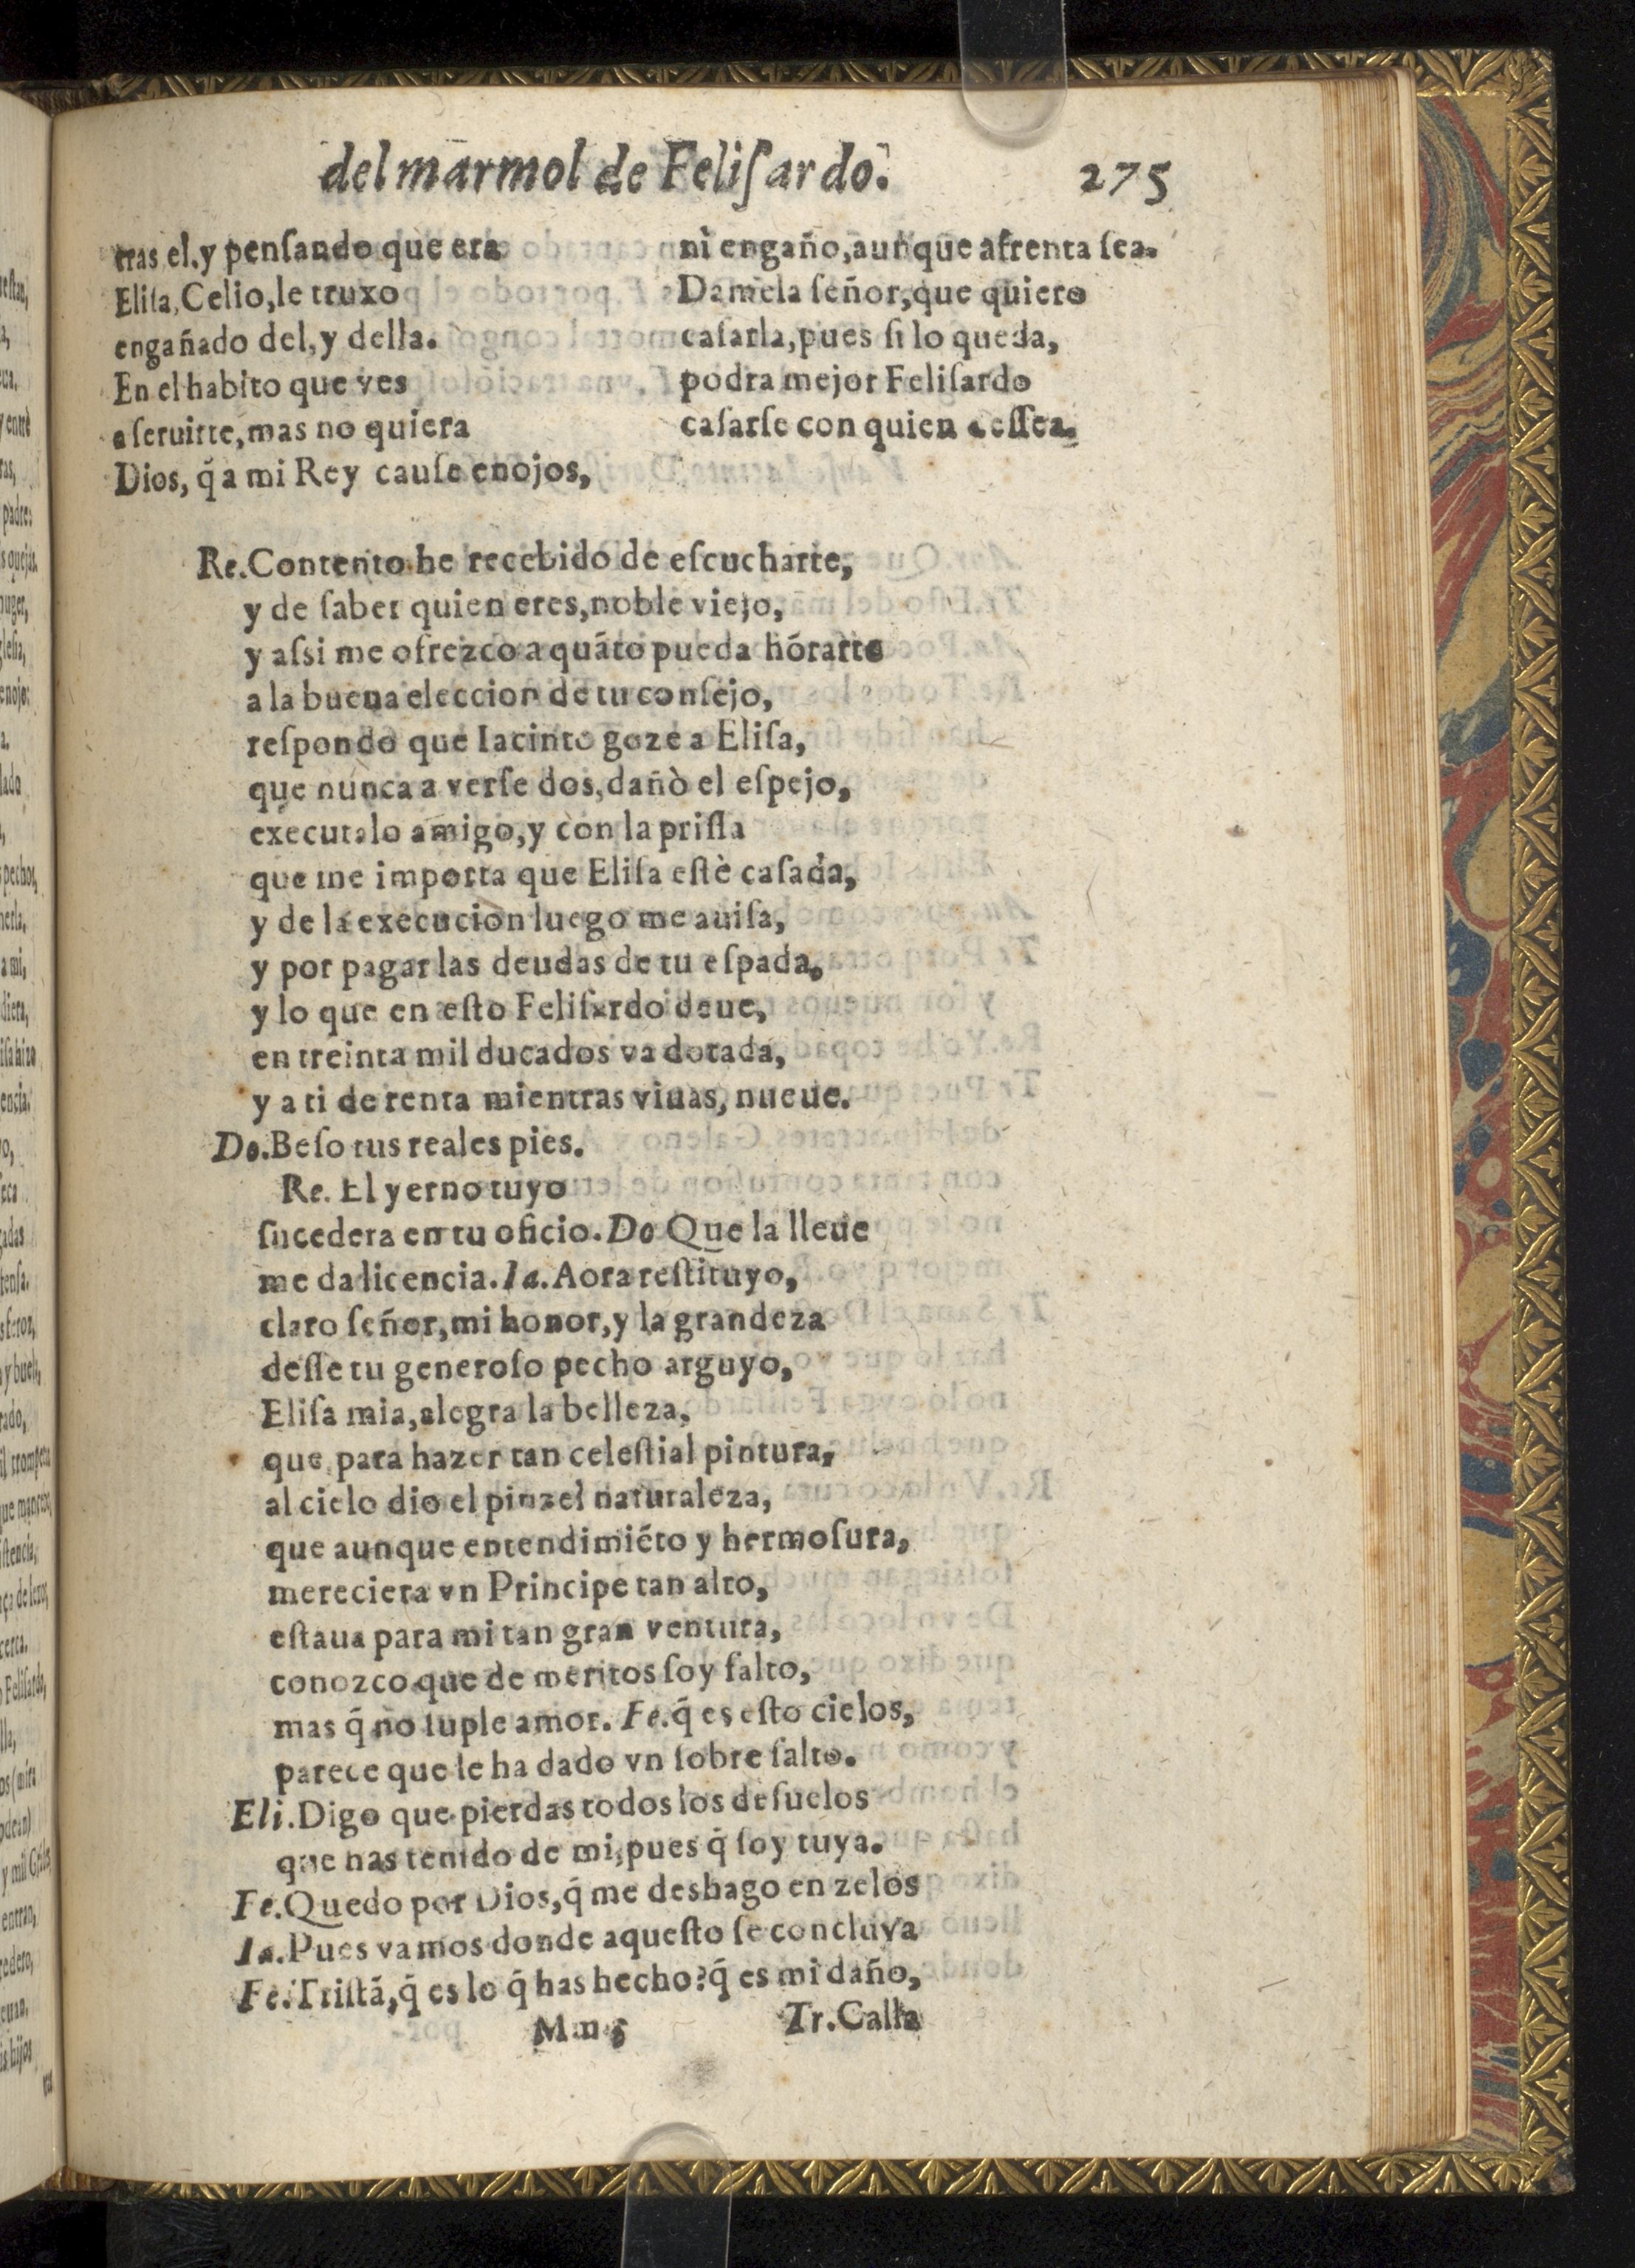 del marmol de Feliſardo. 275
tras el, y penſando que era
Eliſa, Celio, le truxo
engañado del, y della.
En el habito que ves
a ſeruirte, mas no quiera
Dios, q̃ a mi Rey cauſe enojos,
ni engaño, aunque afrenta ſea.
Damela ſeñor, que quiero
caſarla, pues ſi lo queda,
podra mejor Feliſardo
caſarſe con quien deſſea.
Re. Contento he recebido de eſcucharte,
y de ſaber quien eres, noble viejo,
y aſsi me ofrezco a quãto pueda hõrarte
a la buena eleccion de tu conſejo,
reſpondo que Iacinto goze a Eliſa,
que nunca a verſe dos, dañò el eſpejo,
executalo amigo, y con la priſſa
que me importa que Eliſa eſtè caſada,
y de la execucion luego me auiſa,
y por pagar las deudas de tu eſpada,
y lo que en eſto Feliſardo deue,
en treinta mil ducados va dotada,
y a ti de renta mientras viuas, nueue.
Do. Beſo tus reales pies.
Re. El yerno tuyo
ſucedera en tu oficio. Do Que la lleue
me da licencia. Ia. Aora reſtituyo,
claro ſeñor, mi honor, y la grandeza
deſſe tu generoſo pecho arguyo,
Eliſa mia, alegra la belleza,
que para hazer tan celeſtial pintura,
al cielo dio el pinzel naturaleza,
que aunque entendimiẽto y hermoſura,
mereciera vn Principe tan alto,
eſtaua para mi tan gran ventura,
conozco que de meritos ſoy falto,
mas q̃ no ſuple amor. Fe. q̃ es eſto cielos,
parece que le ha dado vn ſobre ſalto.
Eli. Digo que pierdas todos los deſuelos
que has tenido de mi, pues q̃ ſoy tuya.
Fe. Quedo por Dios, q̃ me deshago en zelos
Ia. Pues vamos donde aqueſto ſe concluya
Fe. Triſtã, q̃ es lo q̃ has hecho? q̃ es mi daño,
Mm 5 Tr. Calla